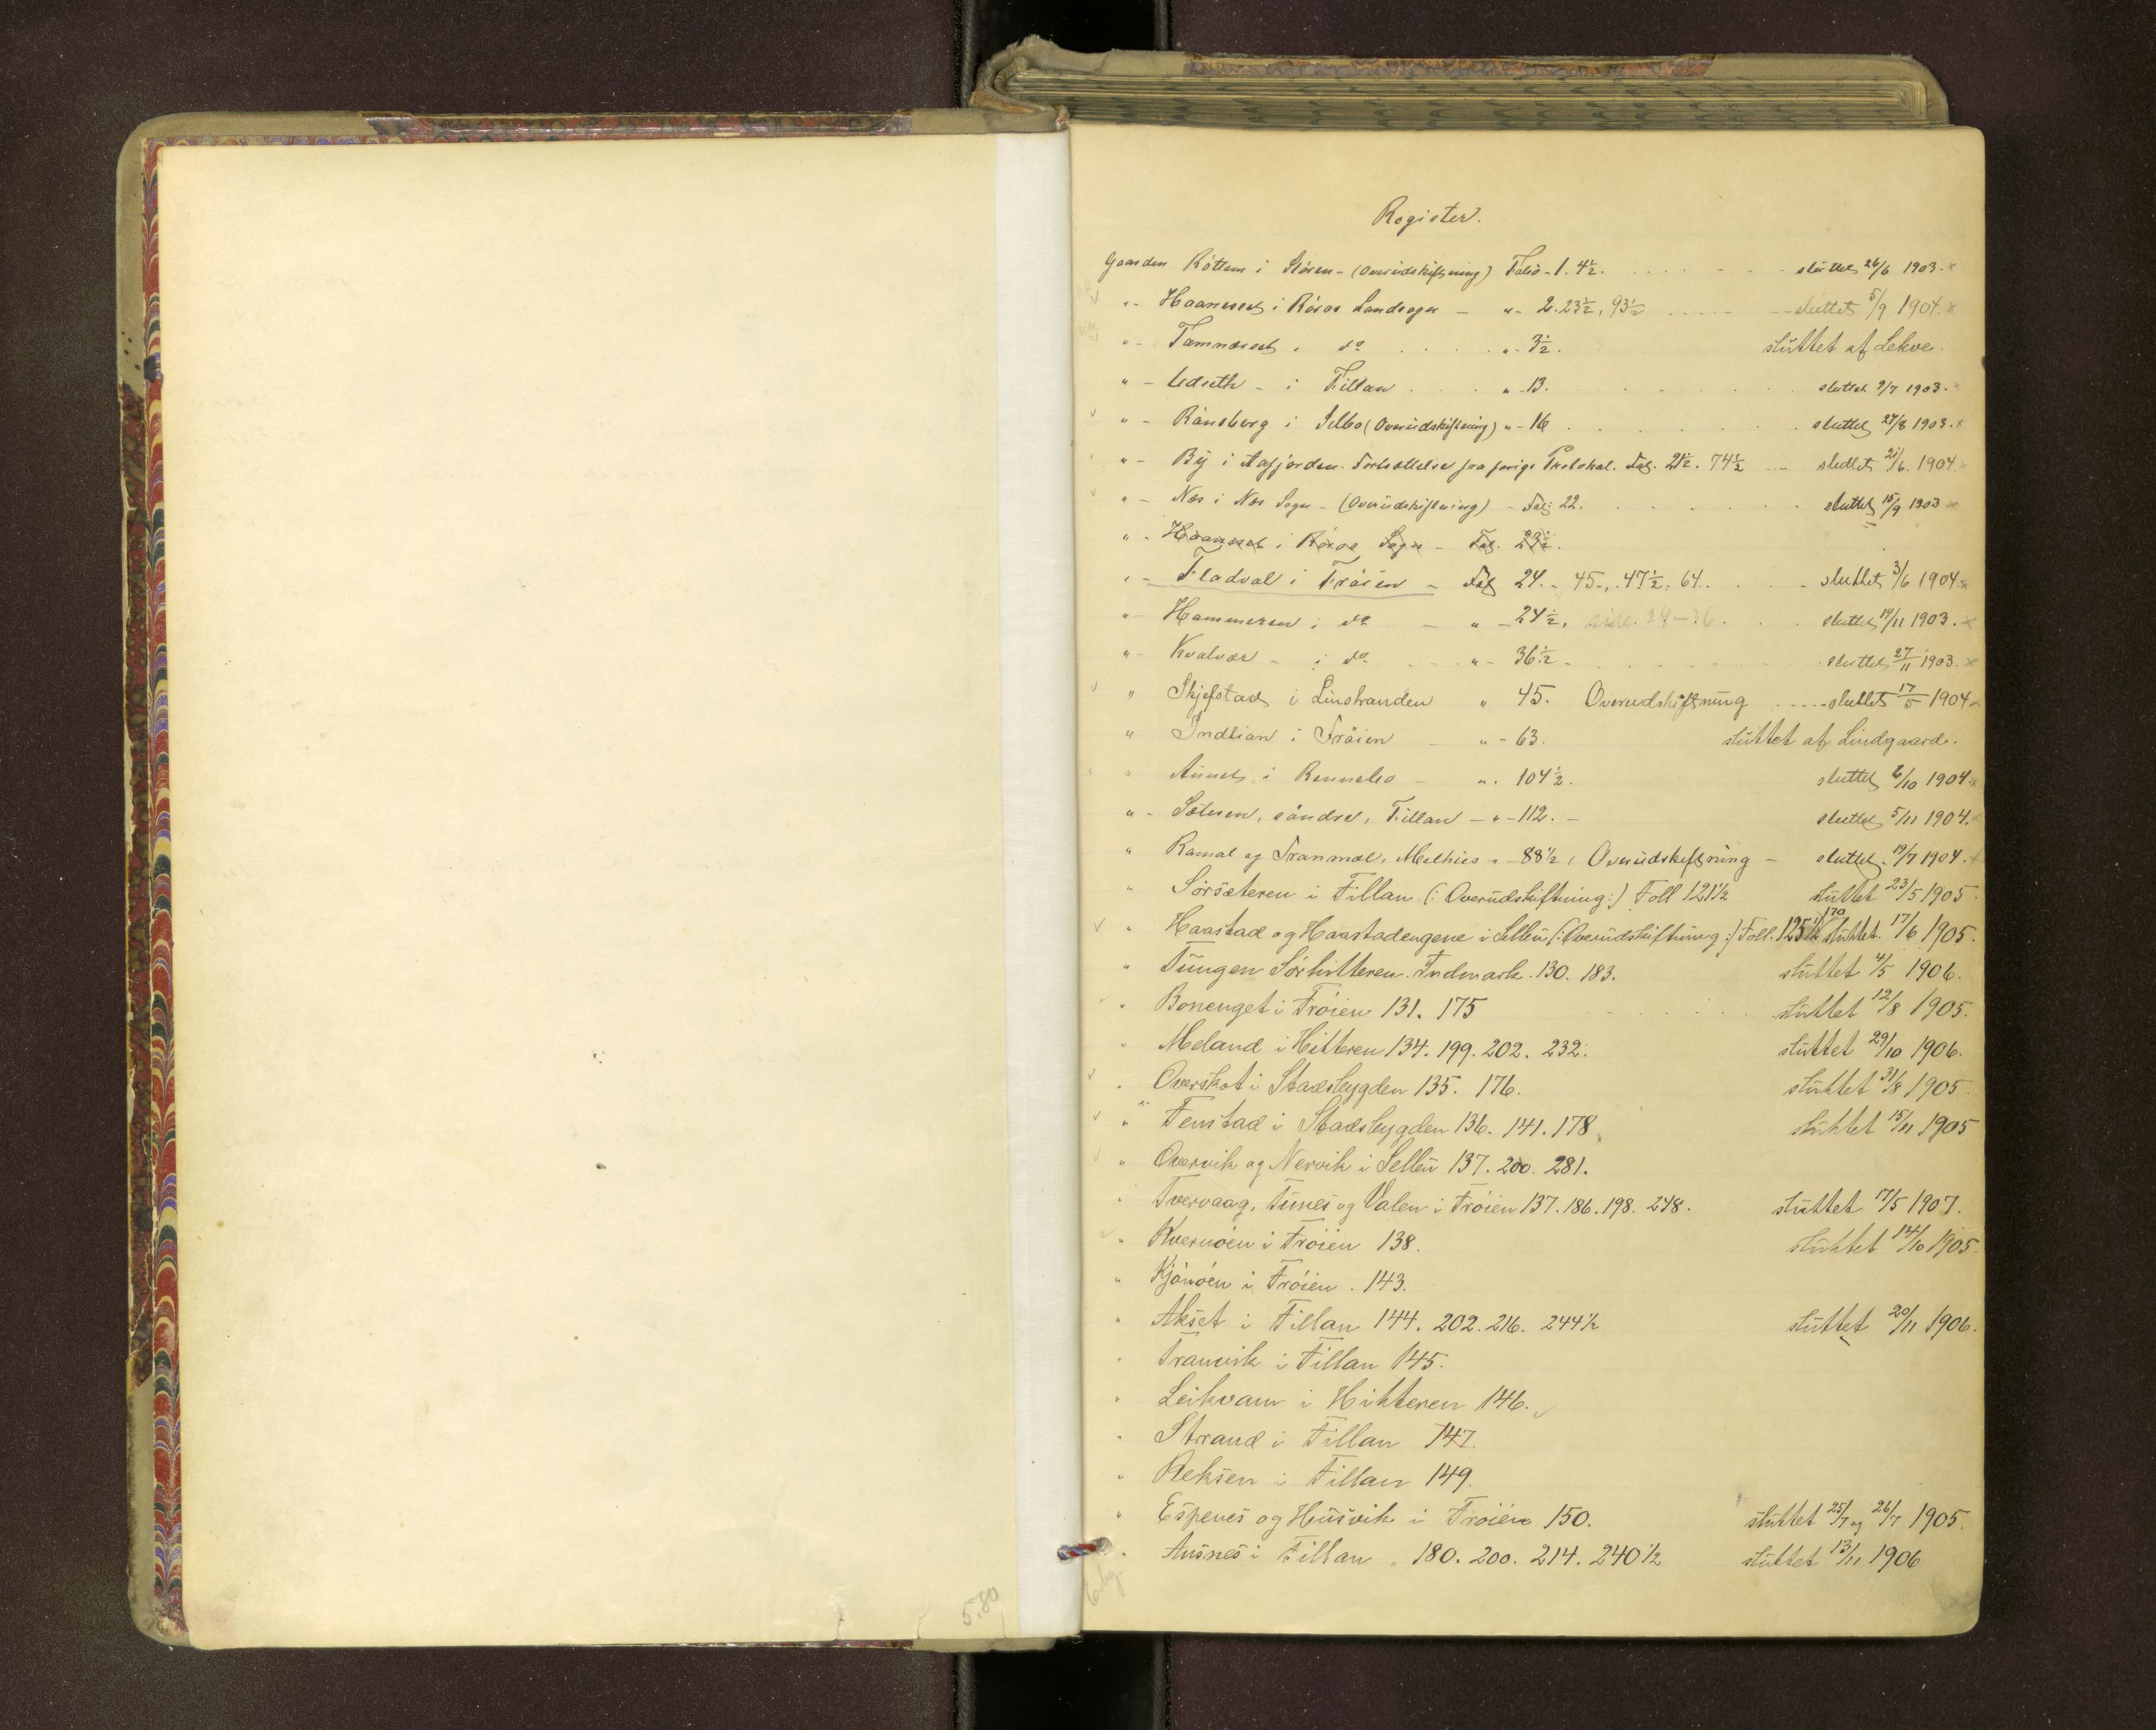 Register.
Gaarden Röttem i Stören - (Overudskiftning) Folio - 1. 4½. sluttet 26/6 1903. x
" - Haaneset i Röros Landsogn - " - 2. 23½, 93½ sluttet 5/9 1904. x
" - Tamneset i do " - 3½. sluttet af Lekve.
" - i Fillan " - 13. sluttet 9/7 1903.
" - Rönsberg i Selbo (Overudskiftning) " - 16 sluttet 27/8 1903. x
" - By i Aafjorden. Fortsættelse fra forige Protokol. Fol. 21½. 74½ sluttet 21/6. 1904.
" - Næs i Næs Sogn - (Overudskiftning) - Fol: 22. sluttet 15/9 1903 x
" - Haaneset i Röros Sogn - Fol. 23½.
" - Fladval i Fröien - Fol 24. - 45., 47½, 64. sluttet 3/6 1904. x
" - Hammeren i do - " - 24½, side 24-36. sluttet 19/11 1903. x
" - Kvalvær - i do " - 36½ - sluttet 27/11 1903. x
" Skjefstad i Leinstranden " 45. Overudskiftning sluttet 17/5 1904 x
" Indlian i Fröien - " - 63. sluttet af Lindgaard.
" Aunet i Rennebo - " . 104½. sluttet 6/10 1904. x
" - Sætren, söndre, Fillan - " - 112. - sluttet 5/11 1904.
" Ramal og Tranmæl, Melhus " - 88½, Overudskiftning - sluttet 19/7 1904. x
" Sörsæteren i Fillan (: Overudskiftning :) Foll 121½ sluttet 23/5 1905.
" Haastad og Haastadengene i Selbu (: Overudskiftning :) Foll. 125½ 170 sluttet 17/6 1905.
" Tungen Sörhitteren. Indmark. 130. 183. sluttet 4/5 1906.
" Bonenget i Fröien 131. 175 sluttet 12/8 1905.
" Meland i Hitteren 134. 199. 202. 232. sluttet 29/10 1906.
" Overskot i Stadsbygden 135. 176. sluttet 31/8 1905
" Fenstad i Stadsbygden 136. 141. 178 sluttet 15/11 1905
" Overvik og Nervik i Selbu 137. 200. 281.
" Tvervaag, Tunes og Valen i Fröien 137. 186. 198. 248. sluttet 17/5 1907.
" Kvernöen i Fröien 138. sluttet 14/10 1905.
" Kjönöen i Fröien. 143.
" Akset i Fillan 144. 202. 216. 244½ sluttet 20/11 1906.
" Tranvik i Fillan 145.
" Leikvam i Hitteren 146.
" Strand i Fillan 147.
" Reksen i Fillan 149.
" Espenes og Husvik i Fröien 150. sluttet 25/7 og 26/7 1905.
" Ansnes i Fillan . 180. 200. 214. 240½ sluttet 13/11 1906
5,80